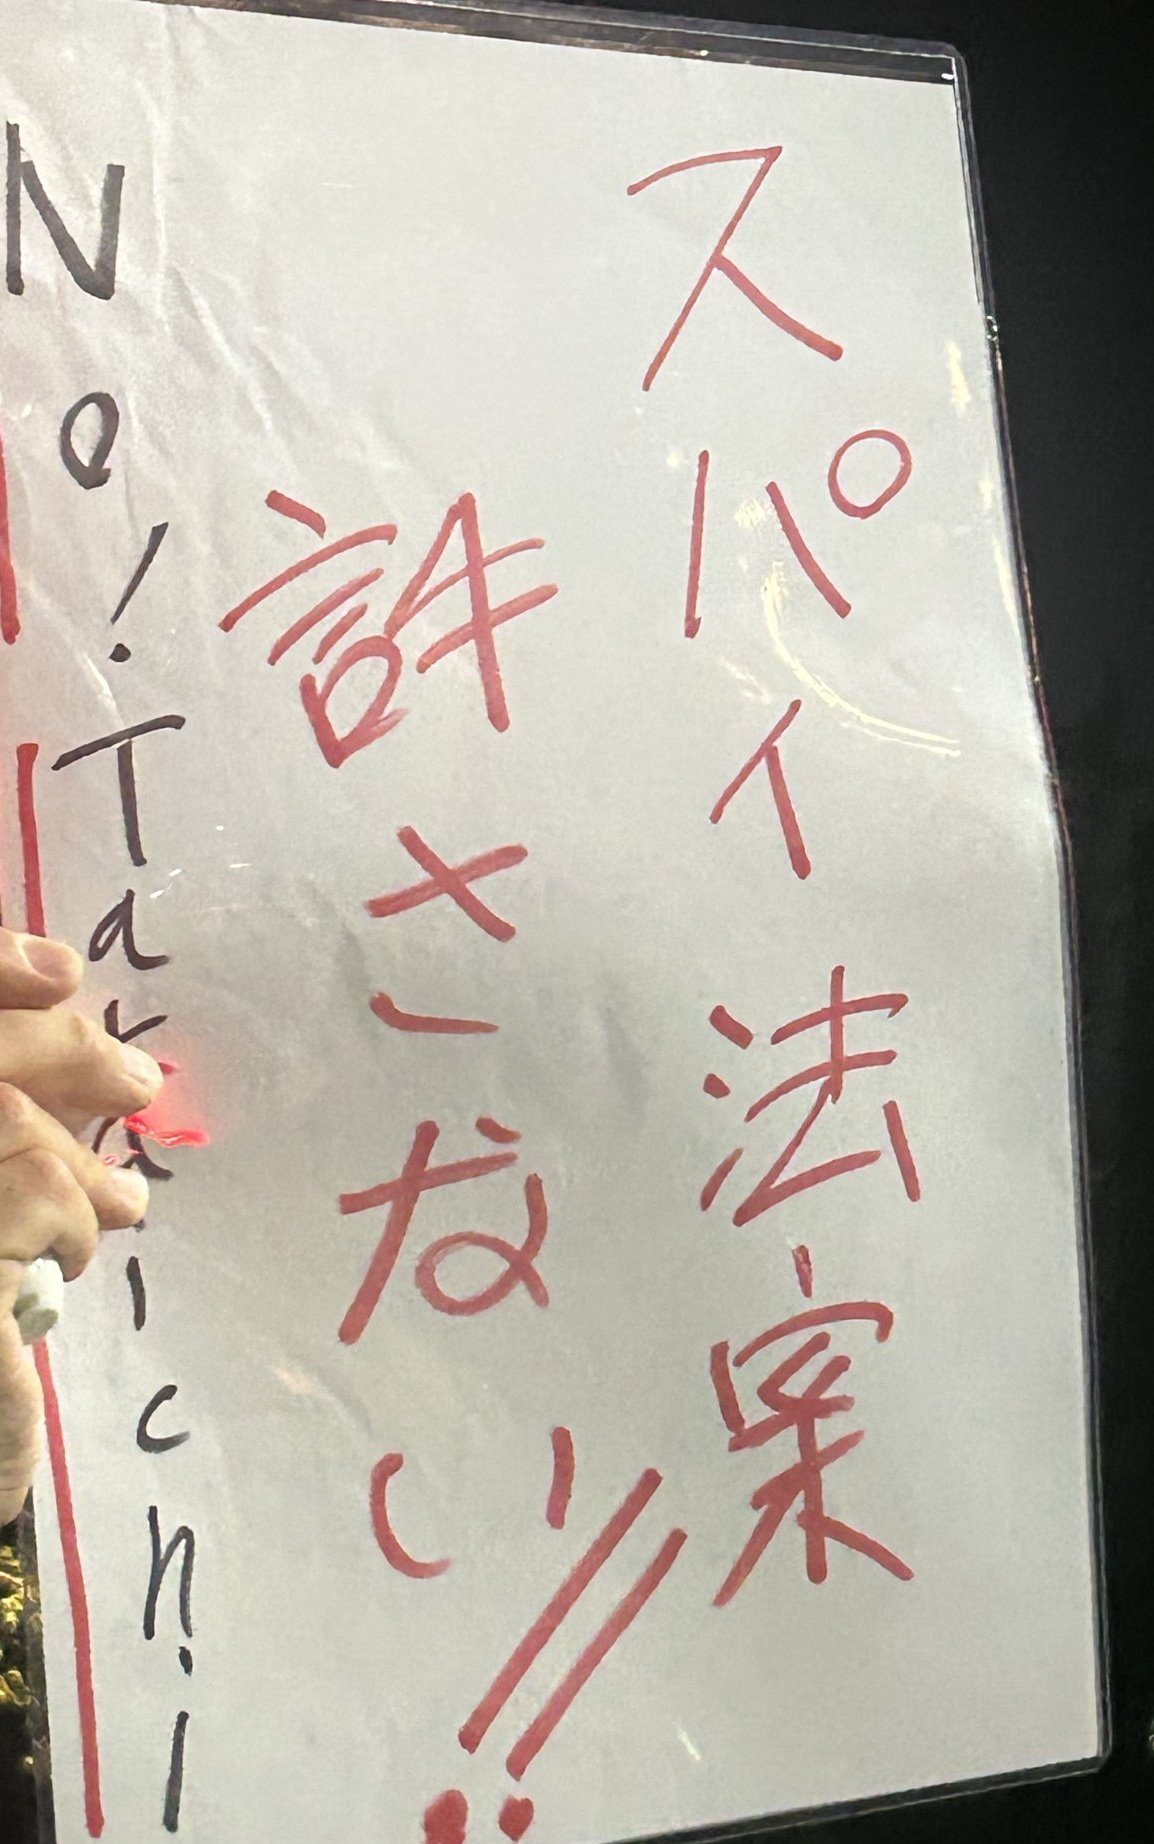 スパイ法案
許さない!!
No! Takaichi